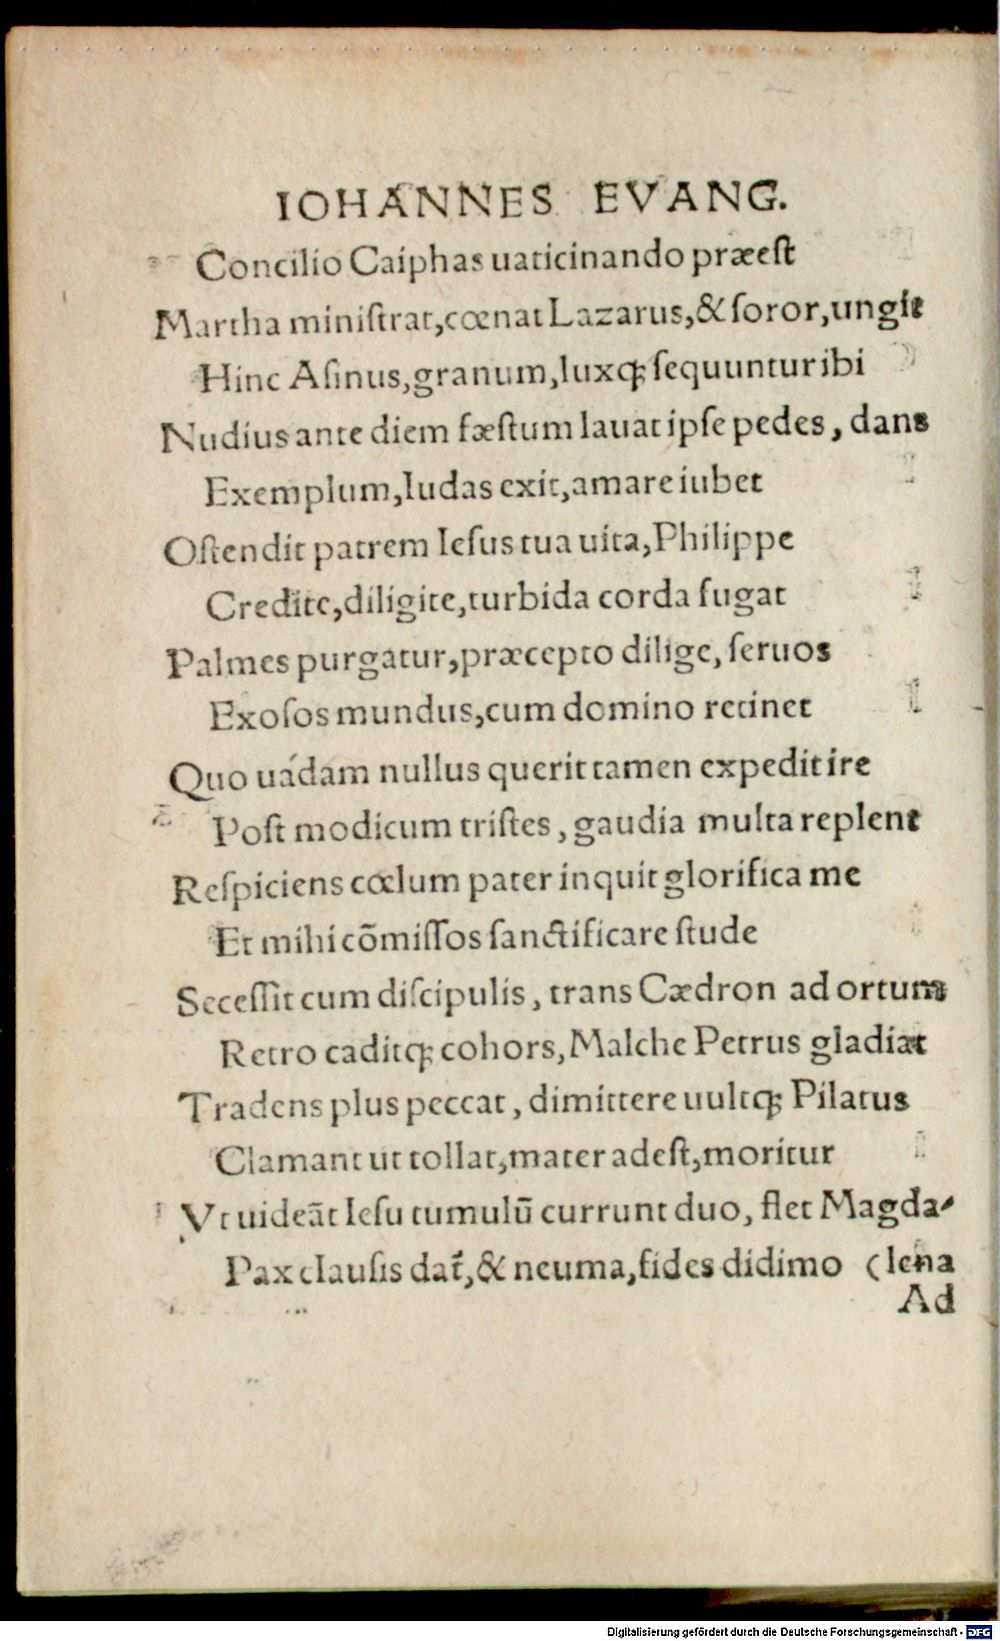 IOHANNES EVANG.
Concilio Caiphas uaticinando præeſt
Martha miniſtrat,cœnat Lazarus,& ſoror,ungit
Hinc Aſinus,granum,luxq; ſequuntur ibi
Nudius ante diem fæſtum lauat ipſe pedes, dans
Exemplum,Iudas exit,amare iubet
Oſtendit patrem Ieſus tua uita,Philippe
Credite,diligite,turbida corda fugat
Palmes purgatur,præcepto dilige, ſeruos
Exoſos mundus,cum domino retinet
Quo uádam nullus querit tamen expedit ire
Poſt modicum triſtes, gaudia multa replent
Reſpiciens cœlum pater inquit glorifica me
Et mihi cõmiſſos ſanctificare ſtude
Seceſſit cum diſcipulis, trans Cædron ad ortum
Retro caditq; cohors, Malche Petrus gladiat
Tradens plus peccat, dimittere uultq; Pilatus
Clamant ut tollat,mater adeſt,moritur
Vt uideãt Ieſu tumulũ currunt duo, flet Magda-
Pax clauſis dat̃,& neuma,fides didimo (lena
Ad
Digitalisierung gefördert durch die Deutsche Forschungsgemeinschaft - DFG